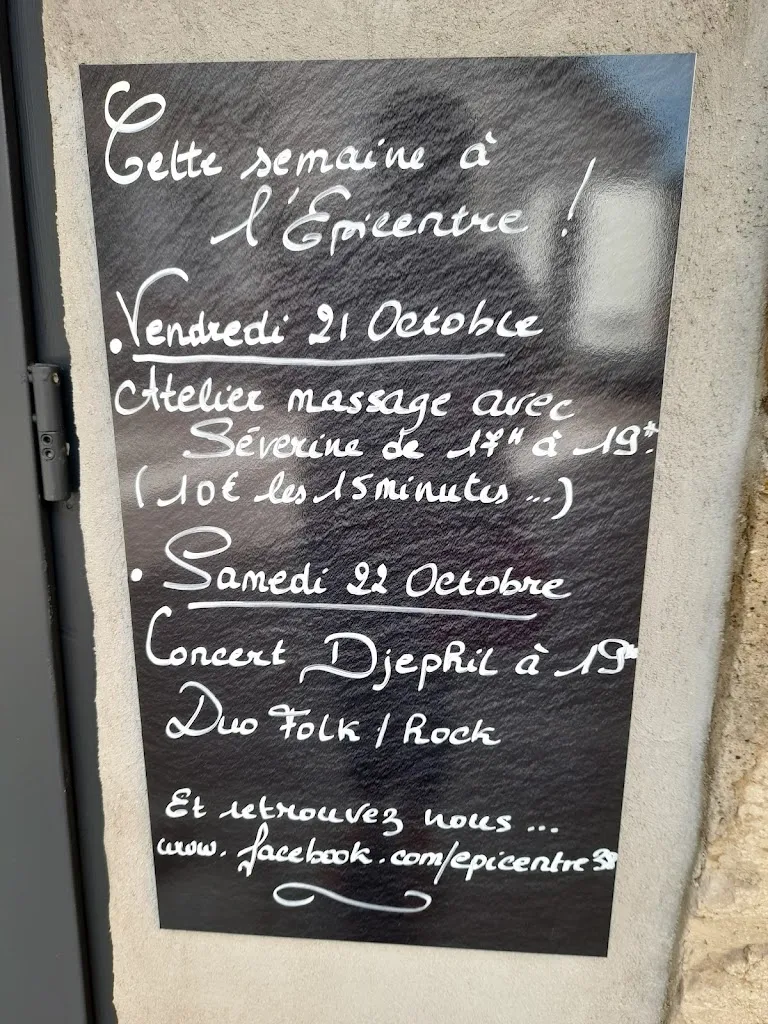 Cette semaine à
l'Epicentre !
• Vendredi 21 Octobre
Atelier massage avec
Séverine de 17H à 19H.
(10€ les 15 minutes ...)
• Samedi 22 Octobre
Concert Djephil à 19H
Duo Folk / Rock
Et retrouvez nous ...
www.facebook.com/epicentre38